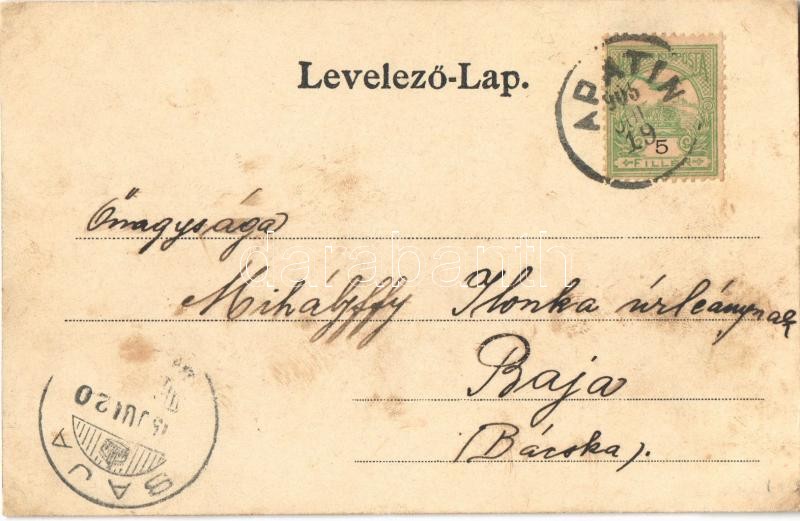 Levelező-Lap.
APATIN
905
JUL
19
5
FILLÉR
Őnagysága
Mihályffy Ilonka úrleánynak
Baja
(Bácska).
BAJA
JUL 20
darabanth